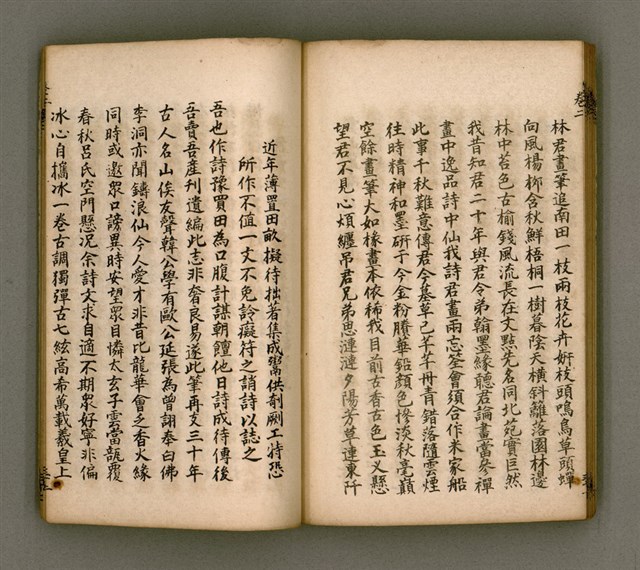 卷二
林君畫筆追南田一枝兩枝花卉妍枝頭鳴鳥草頭蟬
向風楊柳含秋鮮梧桐一樹暮陰天橫斜離落園林邊
林中苔色古榆錢風流長在文點先名同北苑實巨然
我昔知君二十年與君令弟翰墨緣聽君論畫當參禪
畫中逸品詩中仙我詩君畫兩忘筌會須合作米家船
此事千秋難意傳君今墓草已芊芊丹青錯落隨雲煙
往時精神和墨研于今金粉賸華鉛顏色慘淡秋毫巔
空餘畫筆大如椽畫本依稀我目前古香古色玉义懸
望君不見心煩纏吊君兄弟思漣漣夕陽芳草連東阡
近年薄置田畝擬待拙著集成鬻供剞劂工特恐
所作不值一丈不免詅癡符之誚詩以誌之
吾也作詩豫買田為口腹計謀朝饘他日詩成待傳後
吾賣吾產刊遺編此志非奢良易遂此筆再文三十年
古人名山俟友聲韓公學有歐公延張為曾詡奉白佛
李洞亦聞鑄浪仙今人愛才非昔比龍華會之香火緣
同時或邀眾口謗異時安望眾目憐太玄子雲當瓿覆
春秋呂氏空門懸况余詩文求自適不期眾好寧非偏
冰心自攜冰一卷古調獨彈古七絃高希萬載羲皇上